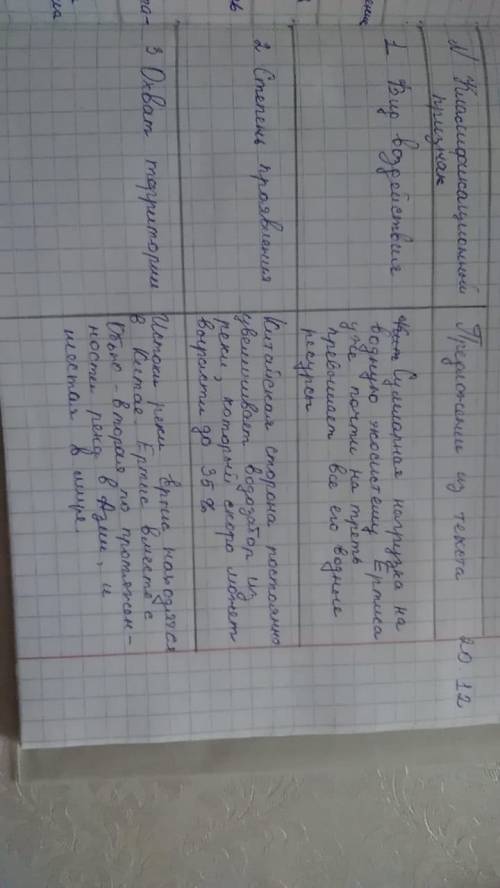 N Классификационный
признак
Предложения из текста
20.12
1 Вид воздействия
Суммарная нагрузка на
водную экосистему Ертиса
уже почти на треть
превышает все его водные
ресурсы
2 Степень проявления
Китайская сторона постоянно
увеличивает водозабор из
реки, который скоро может
вырасти до 35%
3 Охват территории
Истоки реки Ертис находятся
в Китае. Ертис вместе с
Обью - вторая по протяжён-
ности река в Азии, и
шестая в мире.